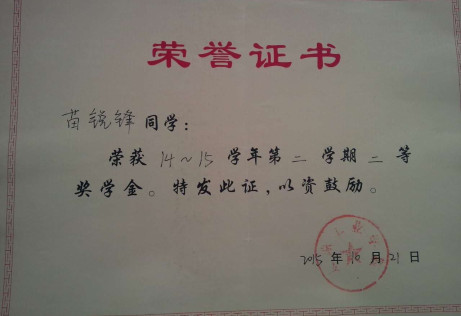 荣誉证书
苗锐锋同学：
荣获14~15学年第二学期二等
奖学金。特发此证，以资鼓励。
2015年10月21日